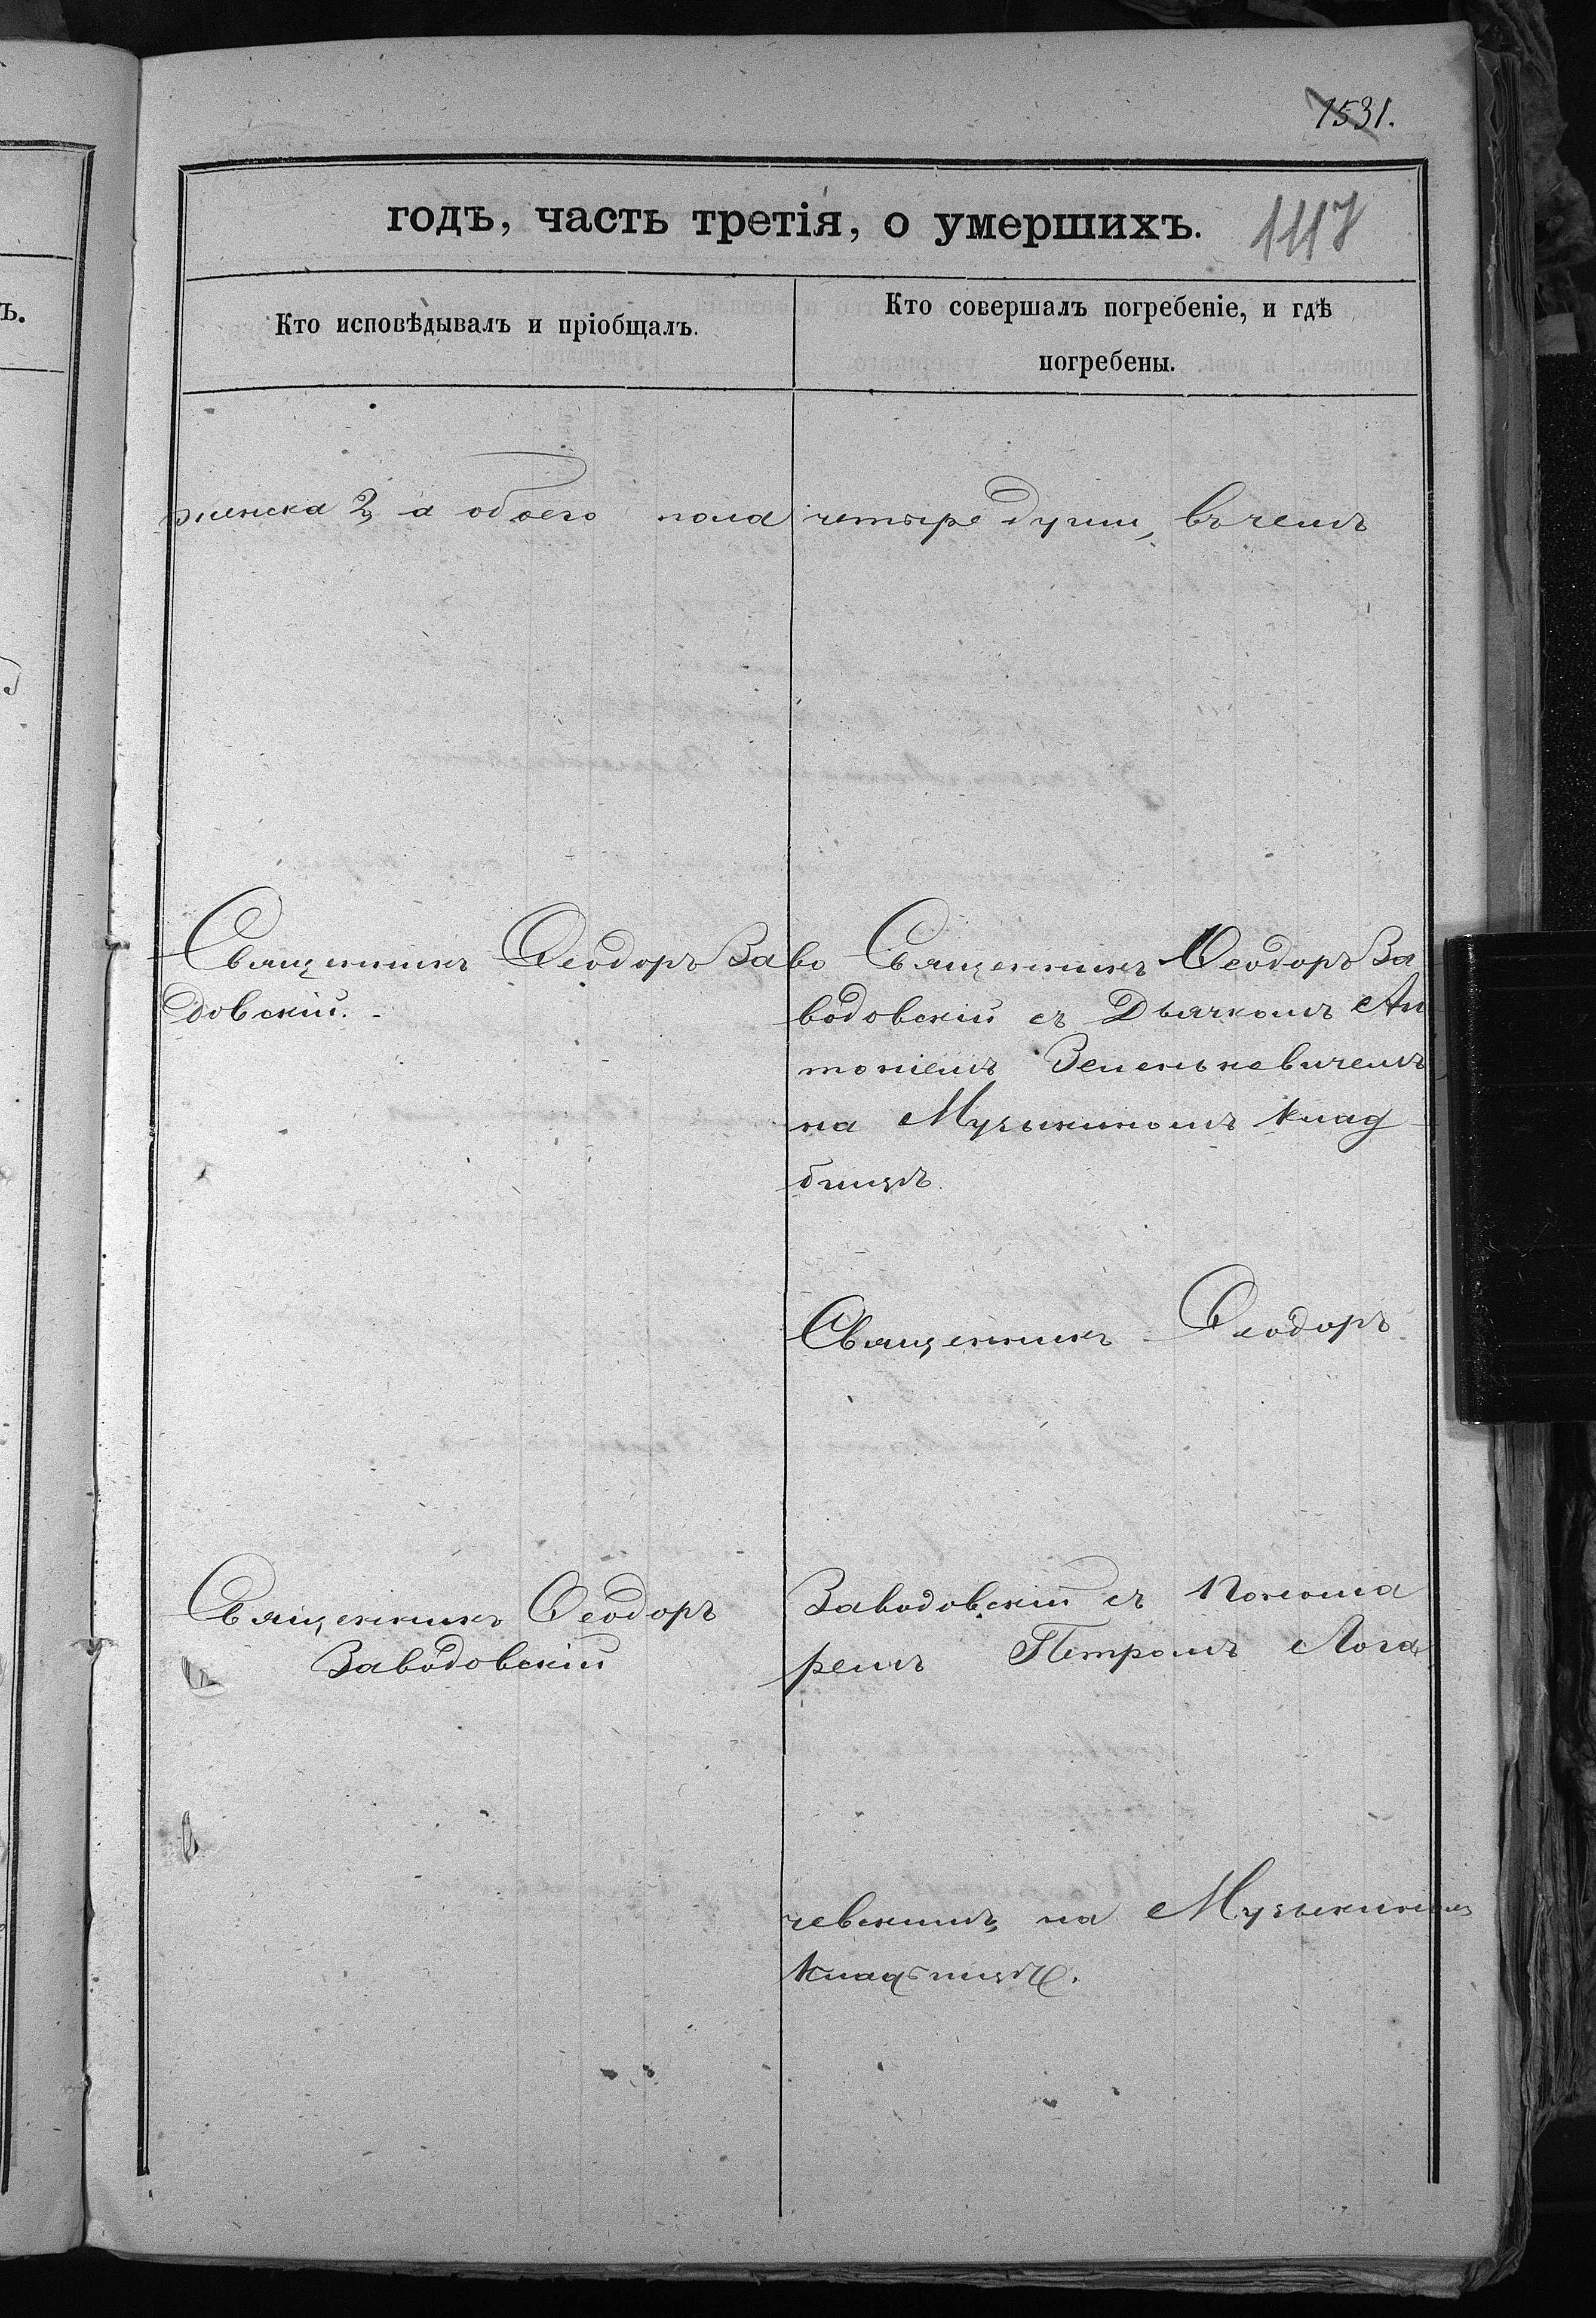 1531.
годъ, часть третія, о умершихъ. 1117
Кто исповѣдывалъ и пріобщалъ.
Кто совершалъ погребеніе, и гдѣ
погребены.
женска 2, а обоего пола четыре души, въ чемъ
Священникъ Ѳеодоръ Заво
довскій.
Священникъ Ѳеодоръ За
водовскій съ Дьячкомъ Ан
тоніемъ Зеленькевичемъ
на Музыкиномъ клад
бищѣ.
Священникъ Ѳеодоръ
Священникъ Ѳеодоръ
Заводовскій
Заводовскій съ Понома
ремъ Петромъ Лога
чевскимъ, на Музыкиномъ
кладбищѣ.